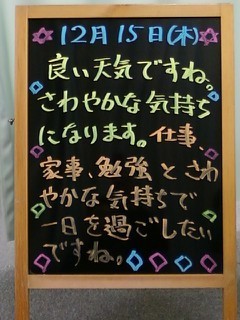 12月15日(木)
良い天気ですね。
さわやかな気持ち
になります。仕事、
家事、勉強とさわ
やかな気持ちで
一日を過ごしたい
ですね。